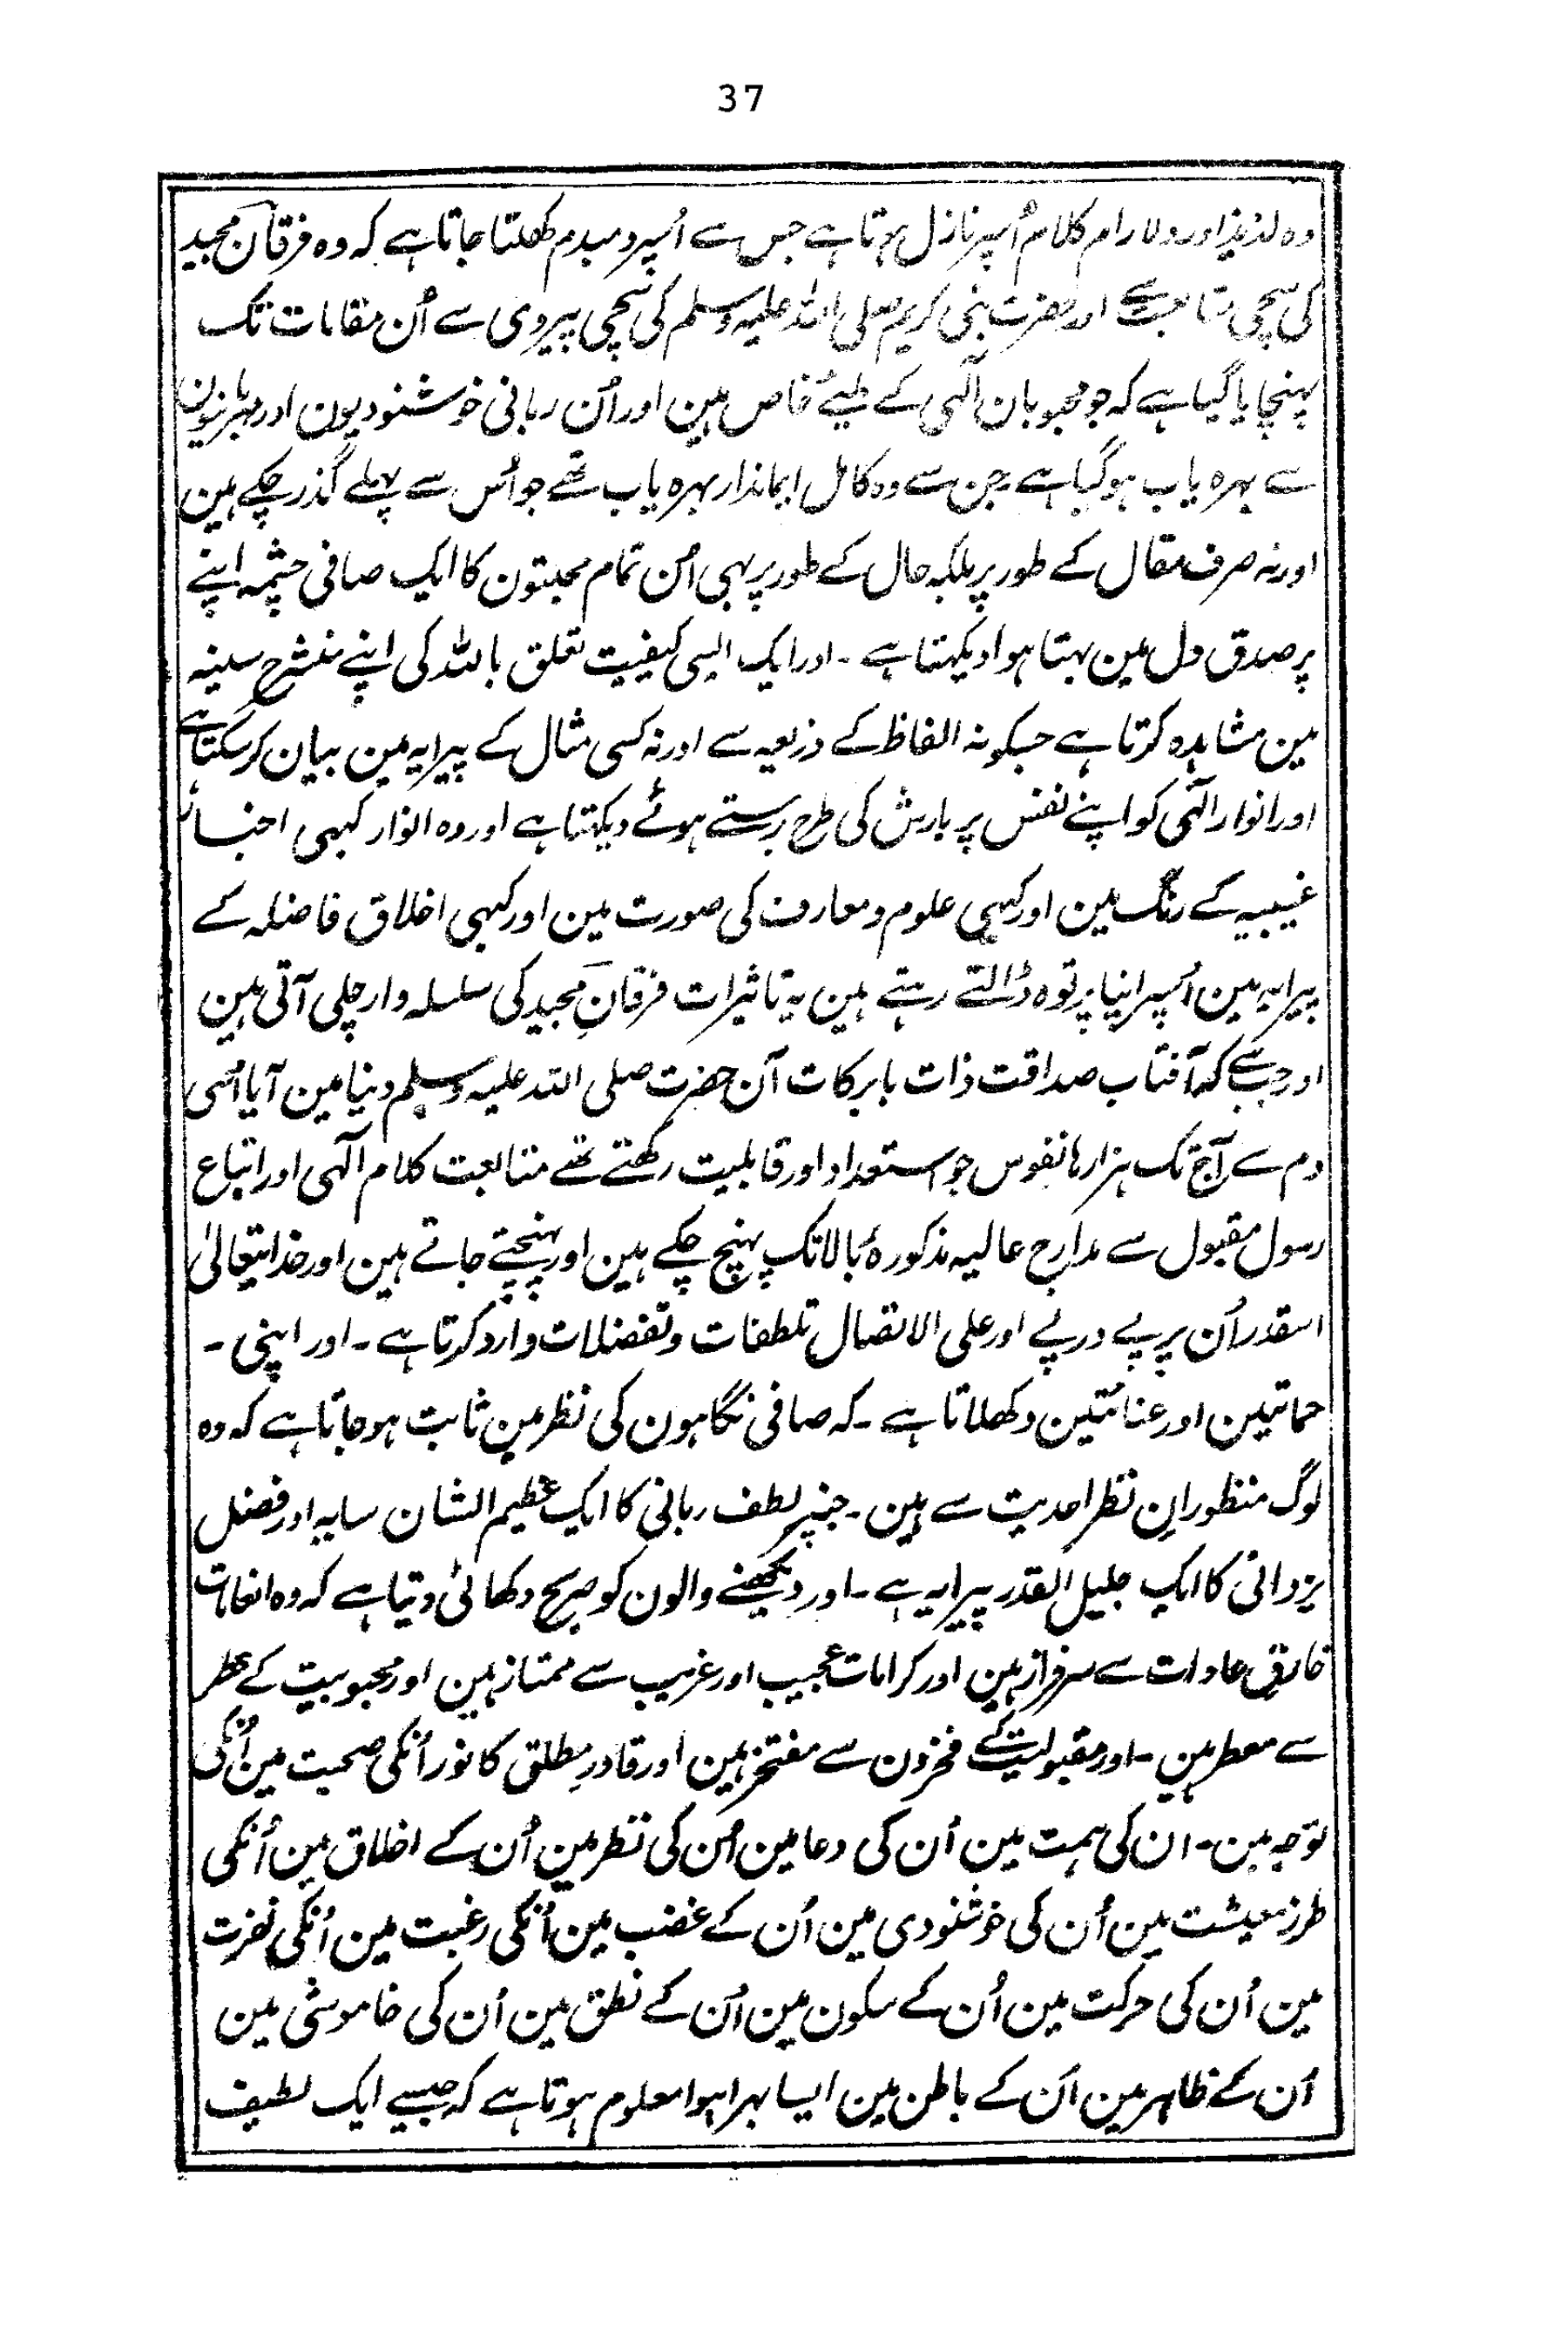 37
وہ لذیذ اور دلارام کلام اُسپر نازل ہوتا ہے جس سے اُسپر دمبدم کھلتا جاتا ہے کہ وہ فرقان مجید
کی سچی متابعت سے اور حضرت نبی کریم صلی اللہ علیہ وسلم کی سچی پیروی سے اُن مقامات تک
پہنچایا گیا ہے کہ جو محبوبان الٓہی کے لیئے خاص ہین اور اُن ربانی خوشنودیون اور مہربانیون
سے بہرہ یاب ہوگیا ہے جن سے وہ کامل ایماندار بہرہ یاب تھے جو اُس سے پہلے گذر چکے ہین
اور نہ صرف مقال کے طور پر بلکہ حال کے طور پر بہی اُن تمام محبتون کا ایک صافی چشمہ اپنے
پر صدق دل مین بہتا ہوا دیکہتا ہے ۔ اور ایک ایسی کیفیت تعلق باللہ کی اپنے منشرح سینہ
مین مشاہدہ کرتا ہے جسکو نہ الفاظ کے ذریعہ سے اور نہ کسی مثال کے پیرایہ مین بیان کرسکتا ہے
اور انوار الٓہی کو اپنے نفس پر بارش کی طرح برستے ہوئے دیکہتا ہے اور وہ انوار کبہی اخبار
غیبیہ کے رنگ مین اور کبہی علوم و معارف کی صورت مین اور کبہی اخلاق فاضلہ کے
پیرایہ مین اُسپر اپنا پرتوہ ڈالتے رہتے ہین یہ تاثیرات فرقانِ مجید کی سلسلہ وار چلی آتی ہین
اور جب سے کہ آفتاب صداقت ذات بابرکات آن حضرت صلی اللہ علیہ وسلم دنیا مین آیا اُسی
دم سے آج تک ہزارہا نفوس جو استعداد اور قابلیت رکھتے تھے متابعت کلام الٓہی اور اتباع
رسول مقبول سے مدارج عالیہ مذکورہٴ بالا تک پہنچ چکے ہین اور پہنچتے جاتے ہین اور خدا یتعالیٰ
اسقدر اُن پر پے درپے اور علی الاتصال تلطفات و تفضلات وارد کرتا ہے ۔ اور اپنی ۔
حمائتین اور عنائتین دکھلاتا ہے ۔ کہ صافی نگاہون کی نظر مین ثابت ہوجاتا ہے کہ وہ
لوگ منظورانِ نظر احدیت سے ہین ۔ جنپر لطف ربانی کا ایک عظیم الشان سایہ اور فضل
یزدانی کا ایک جلیل القدر پیرایہ ہے ۔ اور دیکھنے والون کو صریح دکھائی دیتا ہے کہ وہ انعامات
خارق عادات سے سرفراز ہین اور کرامات عجیب اور غریب سے ممتاز ہین اور محبوبیت کے عطر
سے معطر ہین ۔ اور مقبولیت کے فخرون سے مفتخر ہین اور قادرِ مطلق کا نور اُنکی صحبت مین اُنکی
توجہ مین ۔ ان کی ہمت مین اُن کی دعا مین اُن کی نظر مین اُن کے اخلاق مین اُنکی
طرز معیشت مین اُن کی خوشنودی مین اُن کے غضب مین اُنکی رغبت مین اُنکی نفرت
مین اُن کی حرکت مین اُن کے سکون مین اُن کے نطق مین اُن کی خاموشی مین
اُن کے ظاہر مین اُن کے باطن مین ایسا بہرا ہوا معلوم ہوتا ہے کہ جیسے ایک لطیف